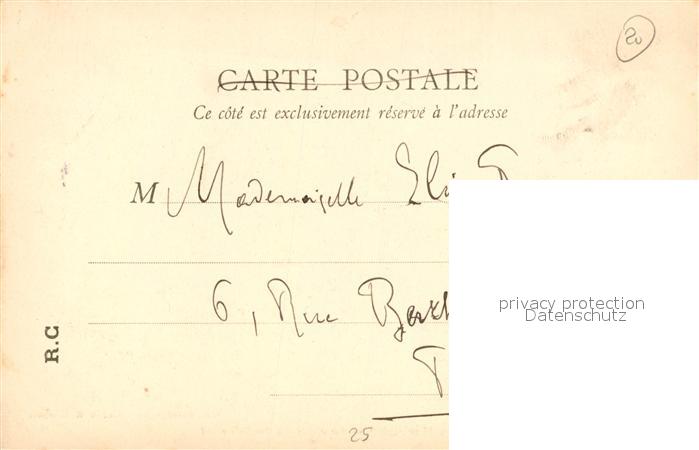 20
CARTE POSTALE
Ce côté est exclusivement réservé à l'adresse
M Mademoiselle
6, Rue
R.C
25
privacy protection
Datenschutz